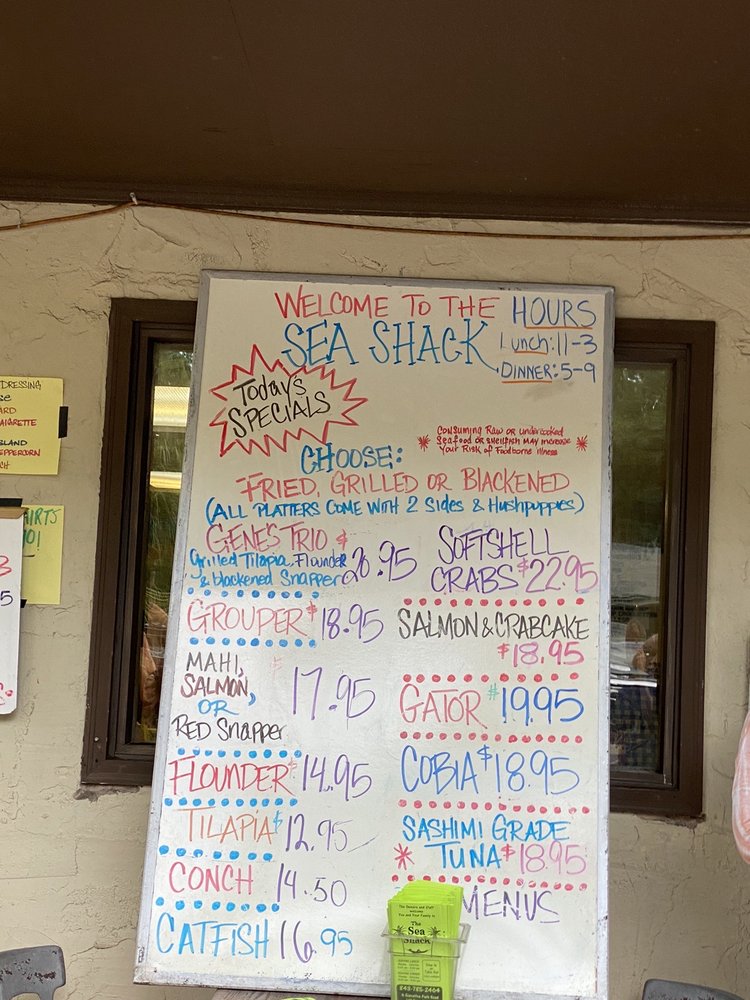 WELCOME TO THE
SEA SHACK
HOURS
Lunch: 11-3
DINNER: 5-9
Today's
SPECIALS
Consuming Raw or undercooked
Seafood or shellfish May increase
Your Risk of Foodborne illness
CHOOSE:
FRIED, GRILLED OR BLACKENED
(ALL PLATTERS COME WITH 2 Sides & Hushpuppies)
GENE'S TRIO $
Grilled Tilapia, Flounder
& blackened Snapper 20.95
GROUPER $18.95
MAHI,
SALMON,
OR
RED Snapper
$17.95
FLOUNDER $14.95
TILAPIA $12.95
CONCH 14.50
CATFISH 16.95
SOFTSHELL
CRABS $22.95
SALMON & CRABCAKE
$18.95
GATOR $19.95
COBIA $18.95
SASHIMI GRADE
* TUNA $18.95
MENUS
The Owners and Staff
welcome
You and Your Family to
The
Sea
Shack
843-785-2464
DRESSING
ISLAND
PEPPERCORN